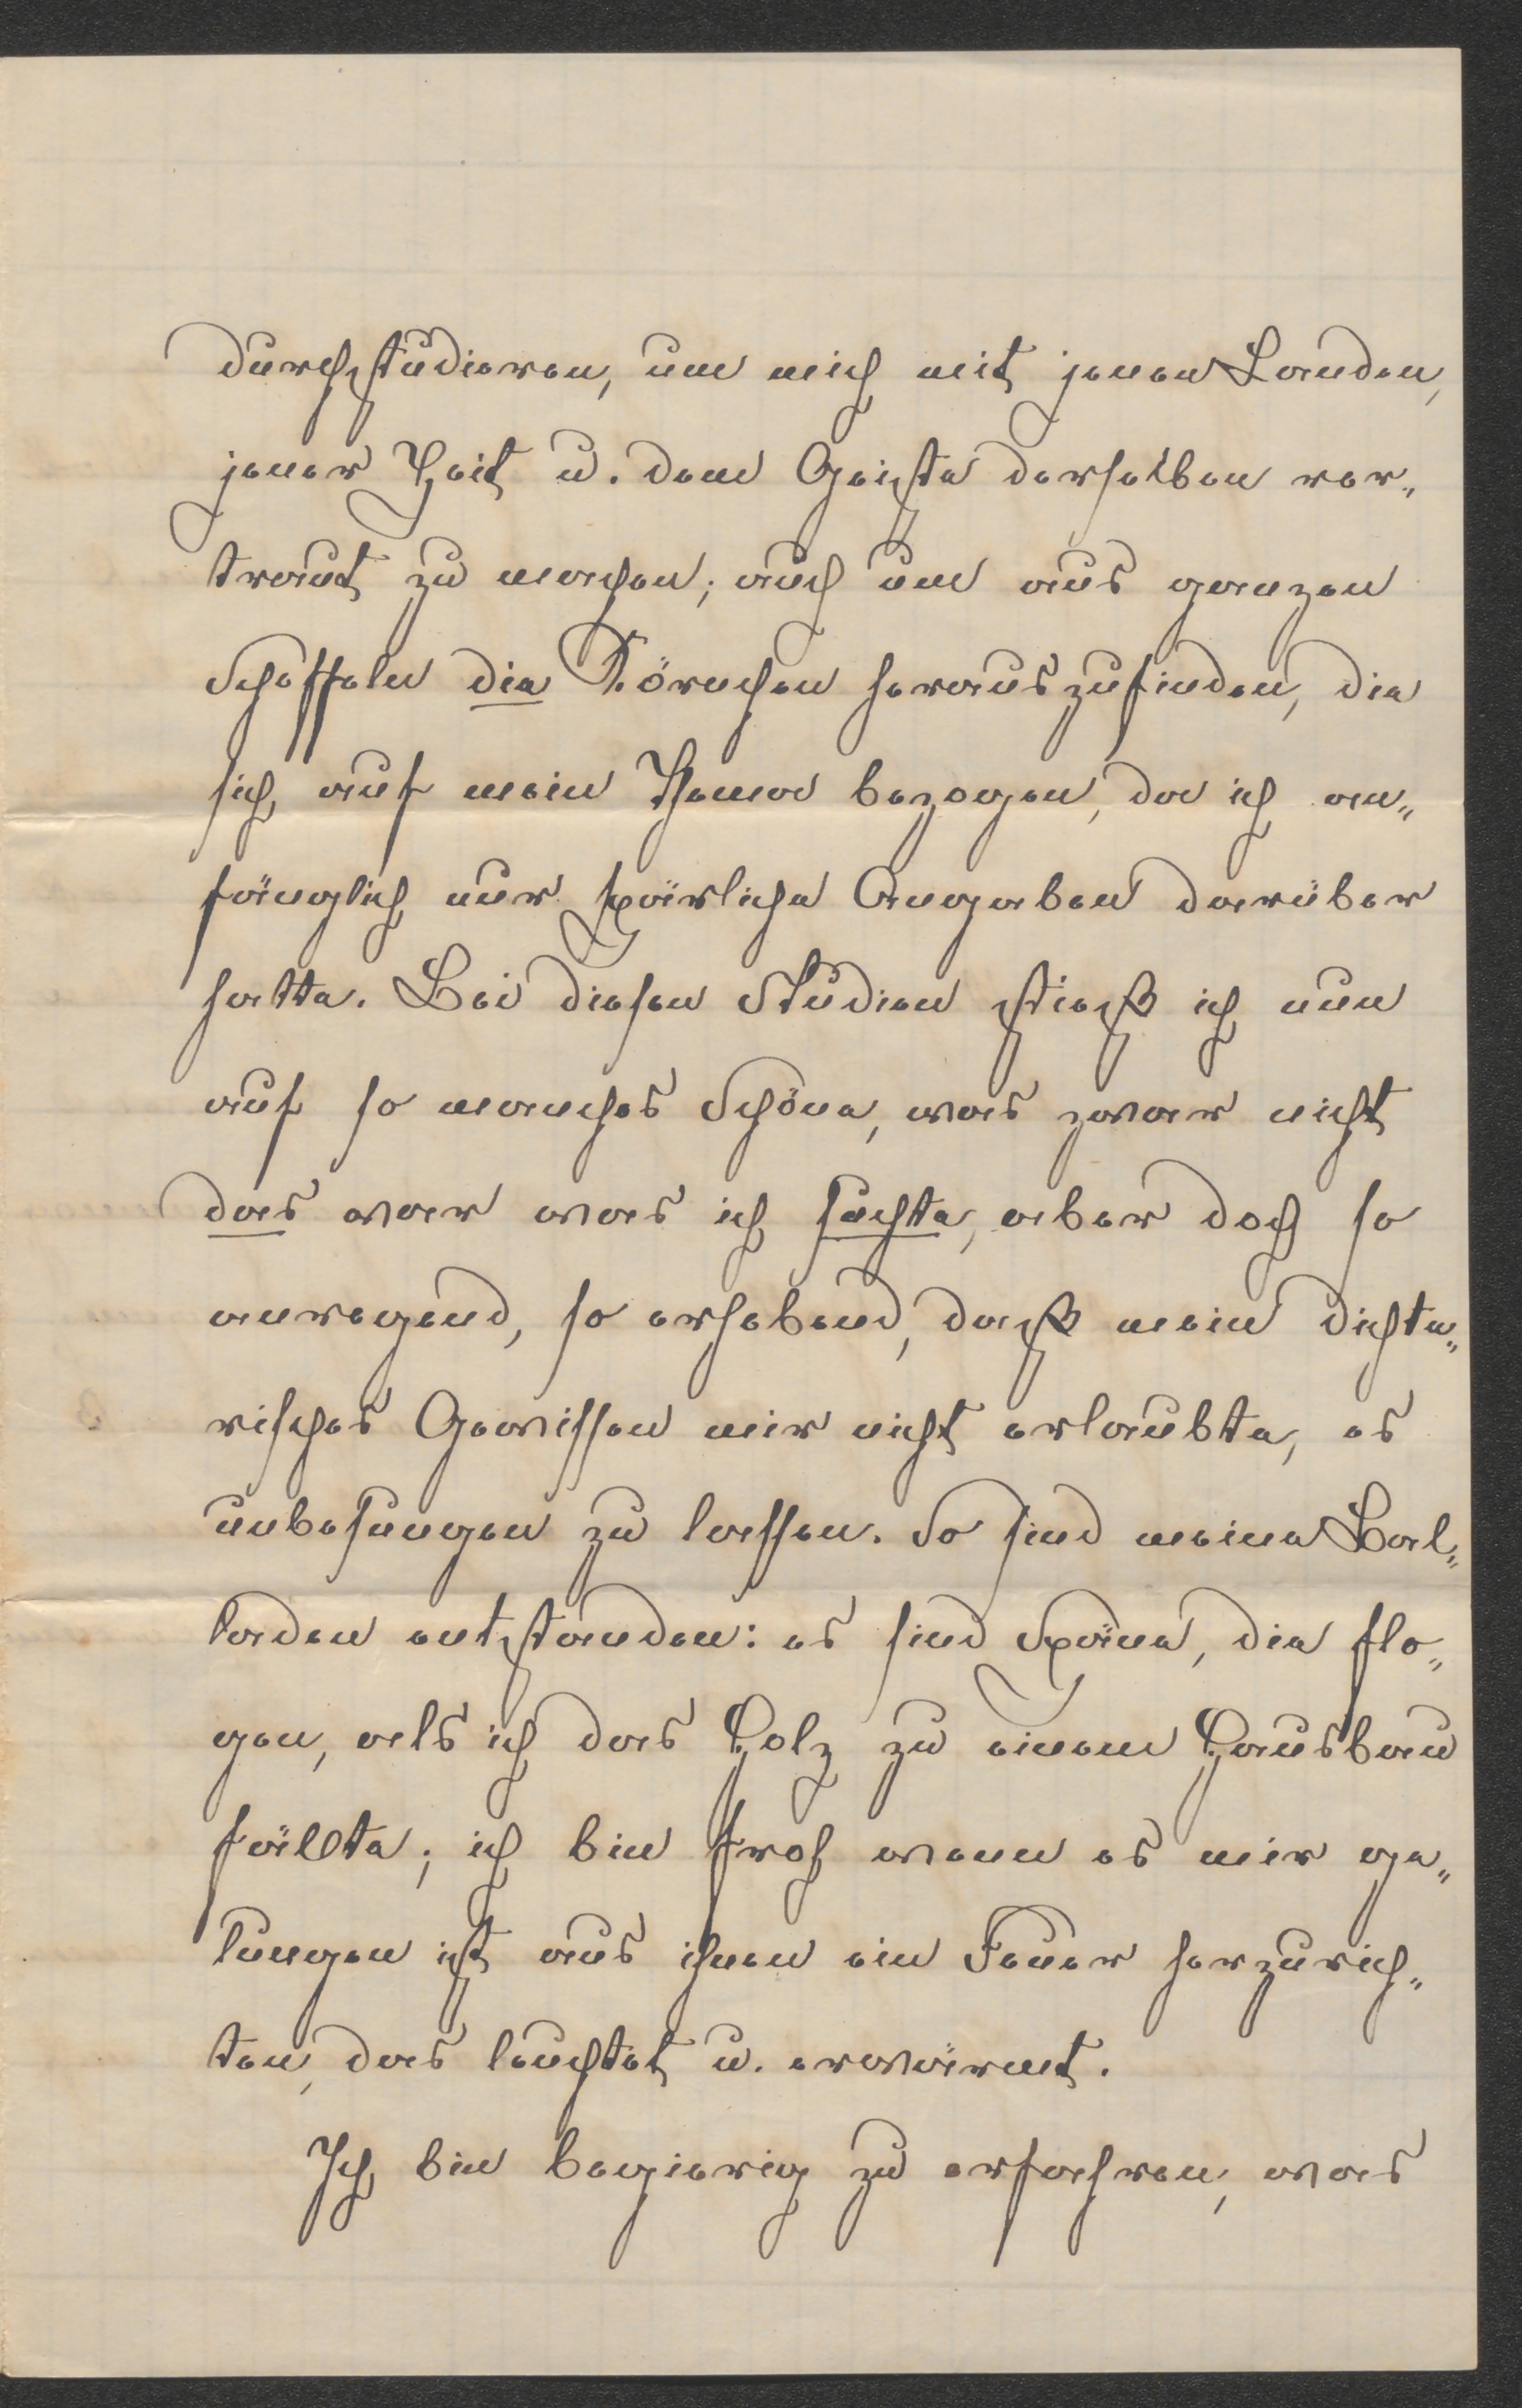 durchstudieren, um mich mit jenen Landen,
jener Zeit u. dem Geiste derselben ver„
traut zu machen; auch um aus ganzen
Scheffeln die Körnchen herauszufinden, die
sich auf mein Thema bezogen, da ich an„
fänglich nur spärliche Angaben darüber
hatte. Bei diesen Studien stieß ich nun
auf so manches Schöne, was zwar nicht
das war was ich suchte, aber doch so
anregend, so erhebend, daß mein dichte„
risches Gewissen mir nicht erlaubte, es
unbesungen zu lassen. So sind meine Bal„
laden entstanden: es sind Späne, die flo„
gen, als ich das Holz zu einem Hausbau
fällte; ich bin froh wenn es mir ge„
lungen ist aus ihnen ein Feuer herzurich„
ten, das leuchtet u. erwärmt.
Ich bin begierig zu erfahren, was